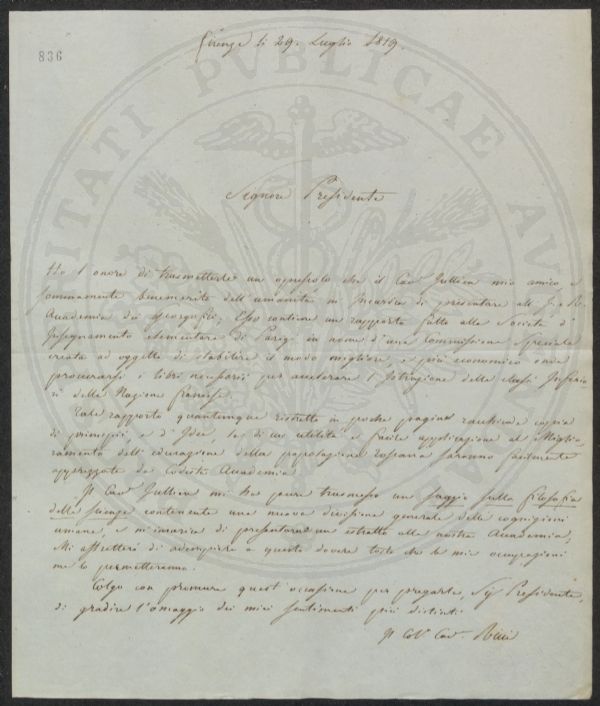 836
Firenze li 29. Luglio 1819.
Signore Presidente
Ho l'onore di trasmetterle un opuscolo che il Cav. Jullien mio amico, e
sommamente benemerito dell'umanità m'incarica di presentare all' I. e R.
Accademia dei Georgofili. Esso contiene un rapporto fatto alla Società d'
Insegnamento elementare di Parigi in nome d'una Commissione Speciale
creata ad oggetto di stabilire il modo migliore, e più economico onde
procurarsi i libri necessarii per accelerare l'Istruzione delle classi Inferio-
ri della Nazione francese.
Tale rapporto quantunque ristretto in poche pagine racchiude copia
di principii, e d'Idee, la di cui utilità e facile applicazione al Miglio-
ramento dell'educazione della popolazione toscana saranno facilmente
apprezzate da codesta Accademia.
Il Cav. Jullien mi ha pure trasmesso un saggio sulla filosofia
delle scienze contenente una nuova divisione generale delle cognizioni
umane, e m'incarica di presentarne un estratto alla nostra Accademia,
Mi affretterò di adempiere a questo dovere tosto che le mie occupazioni
me lo permetteranno.
Colgo con premura quest'occasione per pregarla, Sig. Presidente,
di gradire l'omaggio dei miei sentimenti più distinti.
Il Col. Cav. Ricci
PUBLICAE